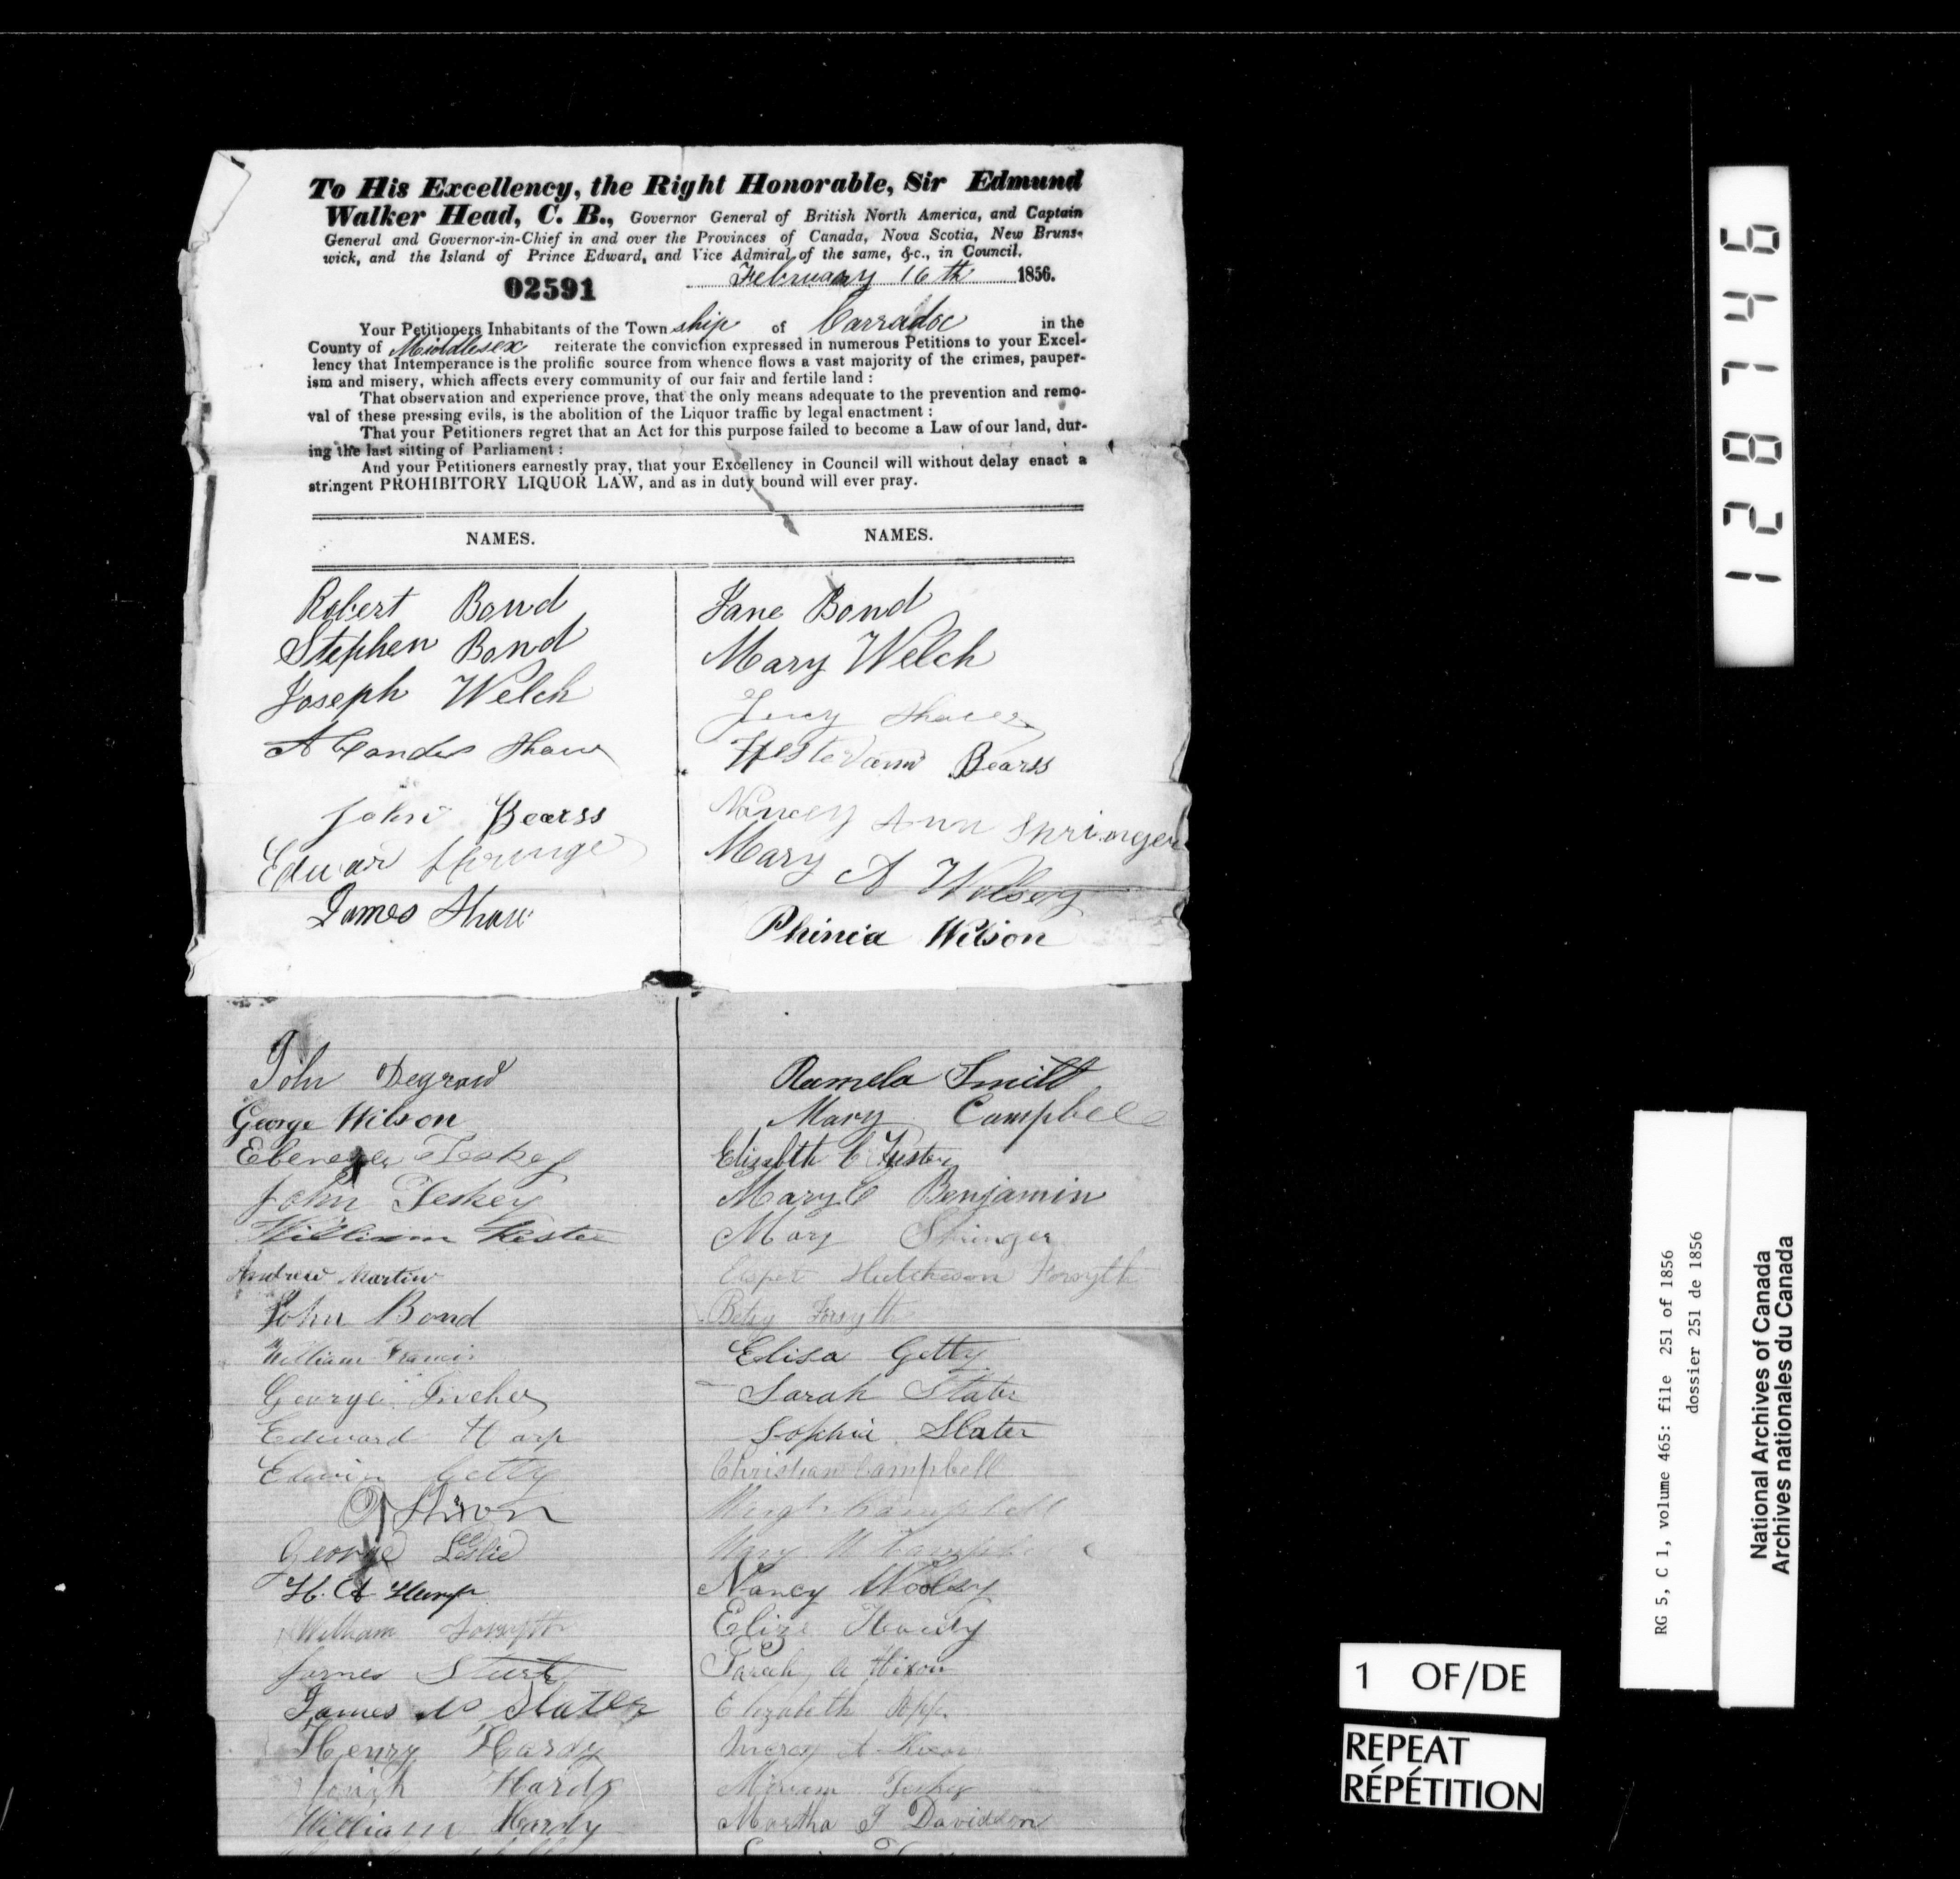 To His Excellency, the Right Honorable, Sir Edmund
Walker Head, C. B., Governor General of British North America, and Captain
General and Governor-in-Chief in and over the Provinces of Canada, Nova Scotia, New Bruns-
wick, and the Island of Prince Edward, and Vice Admiral of the same, &c., in Council.
February 16th 1856.
02591
Your Petitioners Inhabitants of the Township of Carradoc in the
County of Middlesex reiterate the conviction expressed in numerous Petitions to your Excel-
lency that Intemperance is the prolific source from whence flows a vast majority of the crimes, pauper-
ism and misery, which affects every community of our fair and fertile land :
That observation and experience prove, that the only means adequate to the prevention and remo-
val of these pressing evils, is the abolition of the Liquor traffic by legal enactment :
That your Petitioners regret that an Act for this purpose failed to become a Law of our land, dur-
ing the last sitting of Parliament :
And your Petitioners earnestly pray, that your Excellency in Council will without delay enact a
stringent PROHIBITORY LIQUOR LAW, and as in duty bound will ever pray.
NAMES.
Robert Bond
Stephen Bond
Joseph Welch
Shaw
John Bearss
Edwar
James Shaw
John Degraw
George Wilson
Ebenezer Teskey
John Teskey
William
Andrew Martin
John Bond
William Francis
George
Edward Harp
Edwin Getty
George Leslie
H. A.
William Forsyth
James
James Slater
Henry Hardy
Hardy
William Hardy
NAMES.
Jane Bond
Mary Welch
Bearss
Nancy Ann Springer
Mary A
Phinia Wilson
Pamela Smith
Mary Campbell
Elizabeth C
Mary C Benjamin
Mary
Hutcheson Forsyth
Betsy Forsyth
Elisa Getty
Sarah Slater
Sophia Slater
Christian Campbell
Campbell
Mary
Nancy Woolsy
Eliza Hardy
Sarah A Hixon
Elizabeth
A
Miriam Teskey
Martha J Davidson
128746
RG 5, C 1, volume 465: file 251 of 1856
dossier 251 de 1856
National Archives of Canada
Archives nationales du Canada
1 OF/DE
REPEAT
RÉPÉTITION